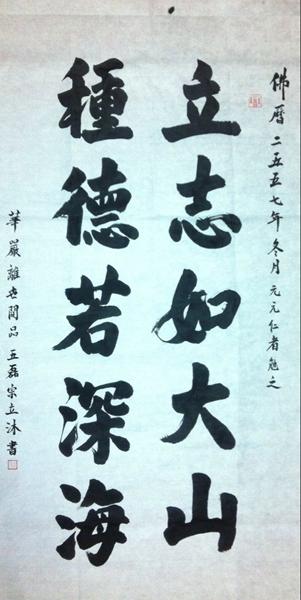 佛曆二五五七年冬月元元仁者勉之
立志如大山
種德若深海
華嚴離世間品王磊宗立沐書